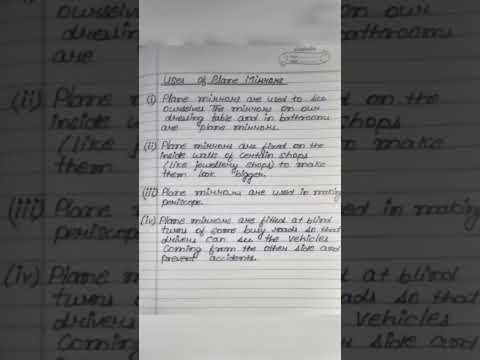 Uses of Plane Mirrors
(i) Plane mirrors are used to see
ourselves The mirrors on our
dressing table and in bathrooms
are plane mirrors.
(ii) Plane mirrors are fixed on the
inside walls of certain shops
(like jewellery shops) to make
them look bigger.
(iii) Plane mirrors are used in making
periscope.
(iv) Plane mirrors are fitted at blind
turns of some busy roads so that
drivers can see the vehicles
coming from the other side and
prevent accidents.